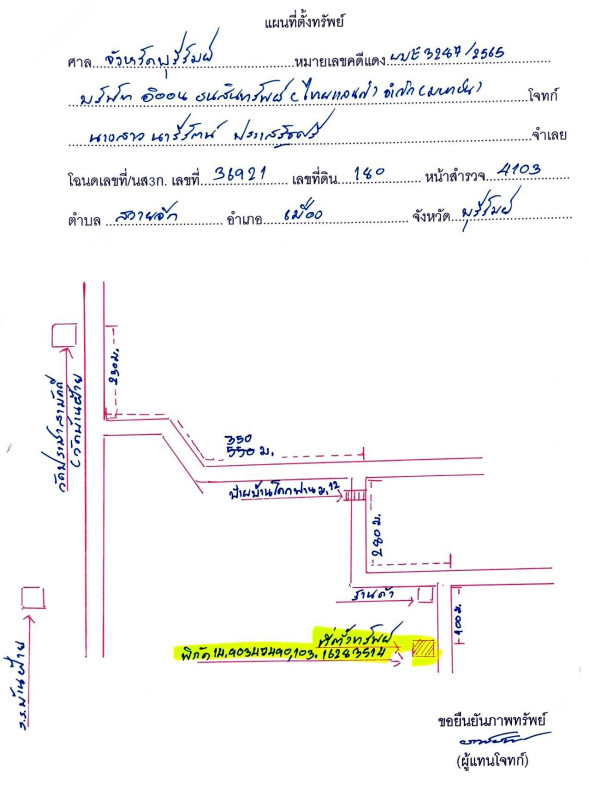 แผนที่ตั้งทรัพย์
ศาล จังหวัดบุรีรัมย์ หมายเลขคดีแดง ผบE3287/2565
บริษัท อิออน ธนสินทรัพย์ (ไทยแลนด์) จำกัด (มหาชน) โจทก์
นางสาว นารีรัตน์ จำเลย
โฉนดเลขที่/นส3ก. เลขที่ 36921 เลขที่ดิน 180 หน้าสำรวจ 4103
ตำบล สวายจีก อำเภอ เมือง จังหวัด บุรีรัมย์
230 ม.
วัดประชาสามัคคี
(วัดบ้านฝ้าย)
350
550 ม.
ป้ายบ้านโคกฟาน ม.12
280 ม.
ร้านค้า
100 ม.
ที่ตั้งทรัพย์
พิกัด 14.90345490,103.16283514
ร.ร.บ้านฝ้าย
ขอยืนยันภาพทรัพย์
(ผู้แทนโจทก์)